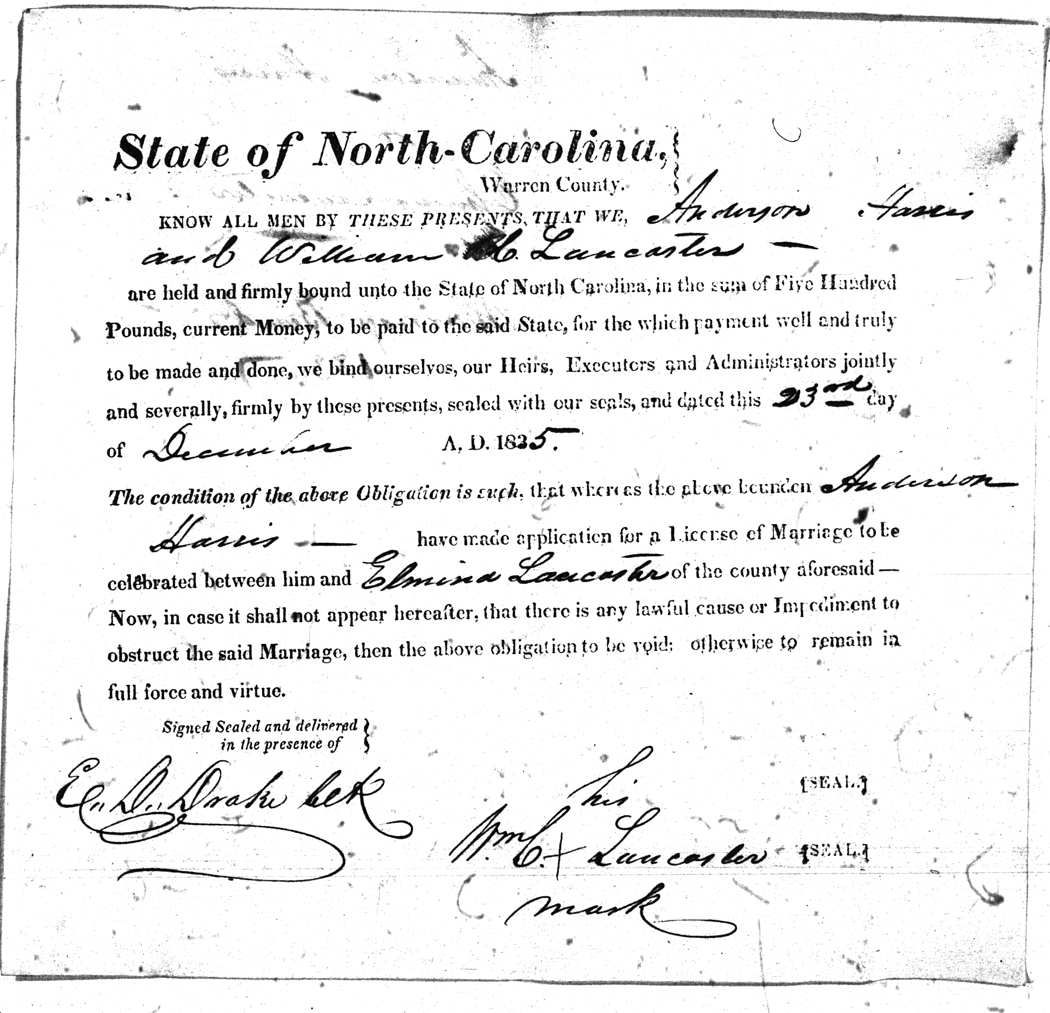 State of North-Carolina,
Warren County.
KNOW ALL MEN BY THESE PRESENTS, THAT WE, Anderson Harris
and William C. Lancaster —
are held and firmly bound unto the State of North Carolina, in the sum of Five Hundred
Pounds, current Money, to be paid to the said State, for the which payment well and truly
to be made and done, we bind ourselves, our Heirs, Executors and Administrators jointly
and severally, firmly by these presents, sealed with our seals, and dated this 23rd day
of December A. D. 1835.
The condition of the above Obligation is such, that whereas the above bounden Anderson
Harris — have made application for a License of Marriage to be
celebrated between him and Elmina Lancaster of the county aforesaid —
Now, in case it shall not appear hereafter, that there is any lawful cause or Impediment to
obstruct the said Marriage, then the above obligation to be void: otherwise to remain in
full force and virtue.
Signed Sealed and delivered
in the presence of
E. D. Drake Clk
{SEAL.}
his
Wm. C. + Lancaster {SEAL.}
mark